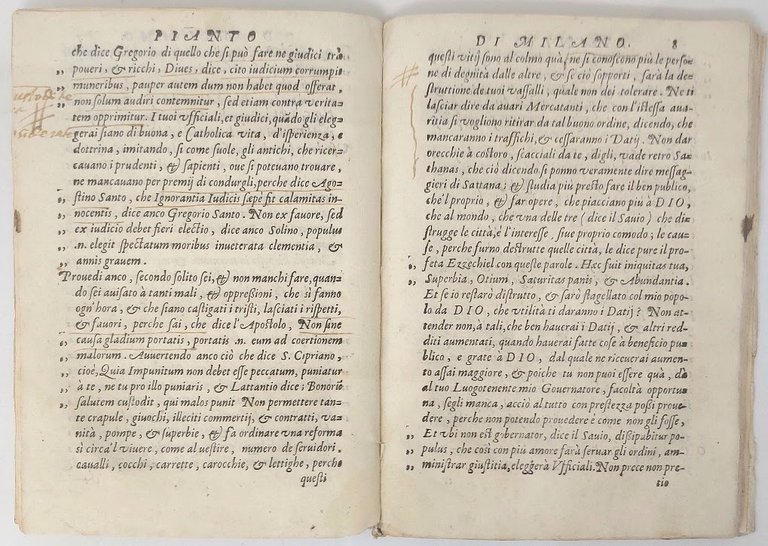 PIANTO
che dice Gregorio di quello che si può fare ne giudici trà
„ poueri, & ricchi, Diues, dice, cito iudicium corrumpi
„ muneribus, pauper autem dum non habet quod offerat,
„ non solum audiri contemnitur, sed etiam contra verita=
„ tem opprimitur. I tuoi vfficiali, et giudici, quãdo gli eleg=
gerai siano di buona, e Catholica vita, d'isperienza, e
dottrina, imitando, si come suole, gli antichi, che ricer=
cauano i prudenti, & sapienti, oue si poteuano trouare,
ne mancauano per premij di condurgeli, perche dice Ago=
„ stino Santo, che Ignorantia Iudicis sæpè fit calamitas in=
„ nocentis, dice anco Gregorio Santo. Non ex fauore, sed
„ ex iudicio debet fieri electio, dice anco Solino, populus
„ n. elegit spectatum moribus inueterata clementia, &
„ annis grauem.
Prouedi anco, secondo solito sei, & non manchi fare, quan=
do sei auisato à tanti mali, & oppressioni, che si fanno
ogn'hora, & che siano castigati i tristi, lasciati i rispetti,
„ & fauori, perche sai, che dice l'Apostolo, Non sine
„ causa gladium portatis, portatis n. eum ad coertionem
„ malorum. Auuertendo anco ciò che dice S. Cipriano,
„ cioè, Quia Impunitum non debet esse peccatum, puniatur
„ à te, ne tu pro illo puniaris, & Lattantio dice; Bonorũ
„ salutem custodit, qui malos punit Non permettere tan=
te crapule, giuochi, illeciti commertij, & contratti, va=
nità, pompe, & superbie, & fa ordinare vna reforma
si circa'l viuere, come al vestire, numero de seruidori.
caualli, cocchi, carrette, carocchie, & lettighe, perche
questi
DI MILANO. 8
questi vitij sono al colmo quà, ne si conoscono più le perso=
ne di degnità dalle altre, & se ciò sopporti, sarà la de=
struttione de tuoi vassalli, quale non dei tolerare. Ne ti
lasciar dire da auari Mercatanti, che con l'istessa aua=
ritia si vogliono ritirar da tal buono ordine, dicendo, che
mancaranno i traffichi, & cessaranno i Datij. Non dar
orecchie à costoro, scacciali da te, digli, vade retro Sa=
thanas, che ciò dicendo si ponno veramente dire messag=
gieri di Sattana; & studia più presto fare il ben publico,
che'l proprio, & far opere, che piacciano più à DIO,
che al mondo, che vna delle tre (dice il Sauio) che di=
strugge le città, è l'interesse, siue proprio comodo; le cau=
se, perche furno destrutte quelle città, le dice pure il pro=
„ feta Ezzechiel con queste parole. Hæc fuit iniquitas tua,
„ Superbia, Otium, Saturitas panis, & Abundantia.
Et se io restarò distrutto, & sarò flagellato col mio popo=
lo da DIO, che vtilità ti daranno i Datij? Non at=
tender non, à tali, che ben hauerai i Datij, & altri red=
diti aumentati, quando hauerai fatte cose à beneficio pu=
blico, e grate à DIO, dal quale ne riceuerai aumen=
to assai maggiore, & poiche tu non puoi essere quà, dà
al tuo Luogotenente mio Gouernatore, facoltà opportu=
na, segli manca, acciò al tutto con prestezza possi proue=
dere, perche non potendo prouedere è come non gli fosse,
„ Et vbi non est gobernator, dice il Sauio, dissipabitur po=
„ pulus, che così con più amore farà seruar gli ordini, am=
ministrar giustitia, eleggerà Vfficiali. Non prece non pre=
tio